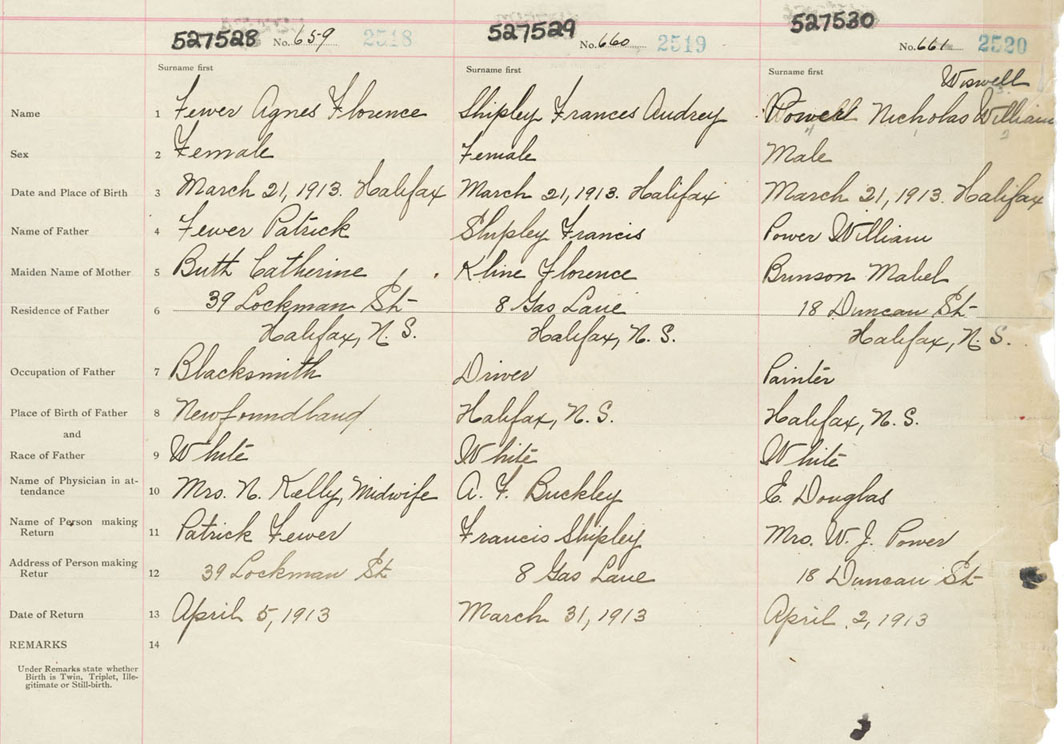 527528 No. 659 2518 527529 No. 660 2519 527530 No. 661 2520
Surname first Surname first Surname first Wiswell
Name 1 Fewer Agnes Florence Shipley Frances Audrey Power Nicholas William
Sex 2 Female Female Male
Date and Place of Birth 3 March 21, 1913. Halifax March 21, 1913. Halifax March 21, 1913. Halifax
Name of Father 4 Fewer Patrick Shipley Francis Power William
Maiden Name of Mother 5 Buth Catherine Kline Florence Brunson Mabel
Residence of Father 6 39 Lockman St 8 Gas Lane 18 Duncan St
Halifax, N. S. Halifax, N. S. Halifax, N. S.
Occupation of Father 7 Blacksmith Driver Painter
Place of Birth of Father 8 Newfoundland Halifax, N. S. Halifax, N. S.
and
Race of Father 9 White White White
Name of Physician in at-
tendance 10 Mrs. N. Kelly, Midwife A. F. Buckley E. Douglas
Name of Person making
Return 11 Patrick Fewer Francis Shipley Mrs. W. J. Power
Address of Person making
Retur 12 39 Lockman St 8 Gas Lane 18 Duncan St
Date of Return 13 April 5, 1913 March 31, 1913 April 2, 1913
REMARKS 14
Under Remarks state whether
Birth is Twin, Triplet, Ille-
gitimate or Still-birth.